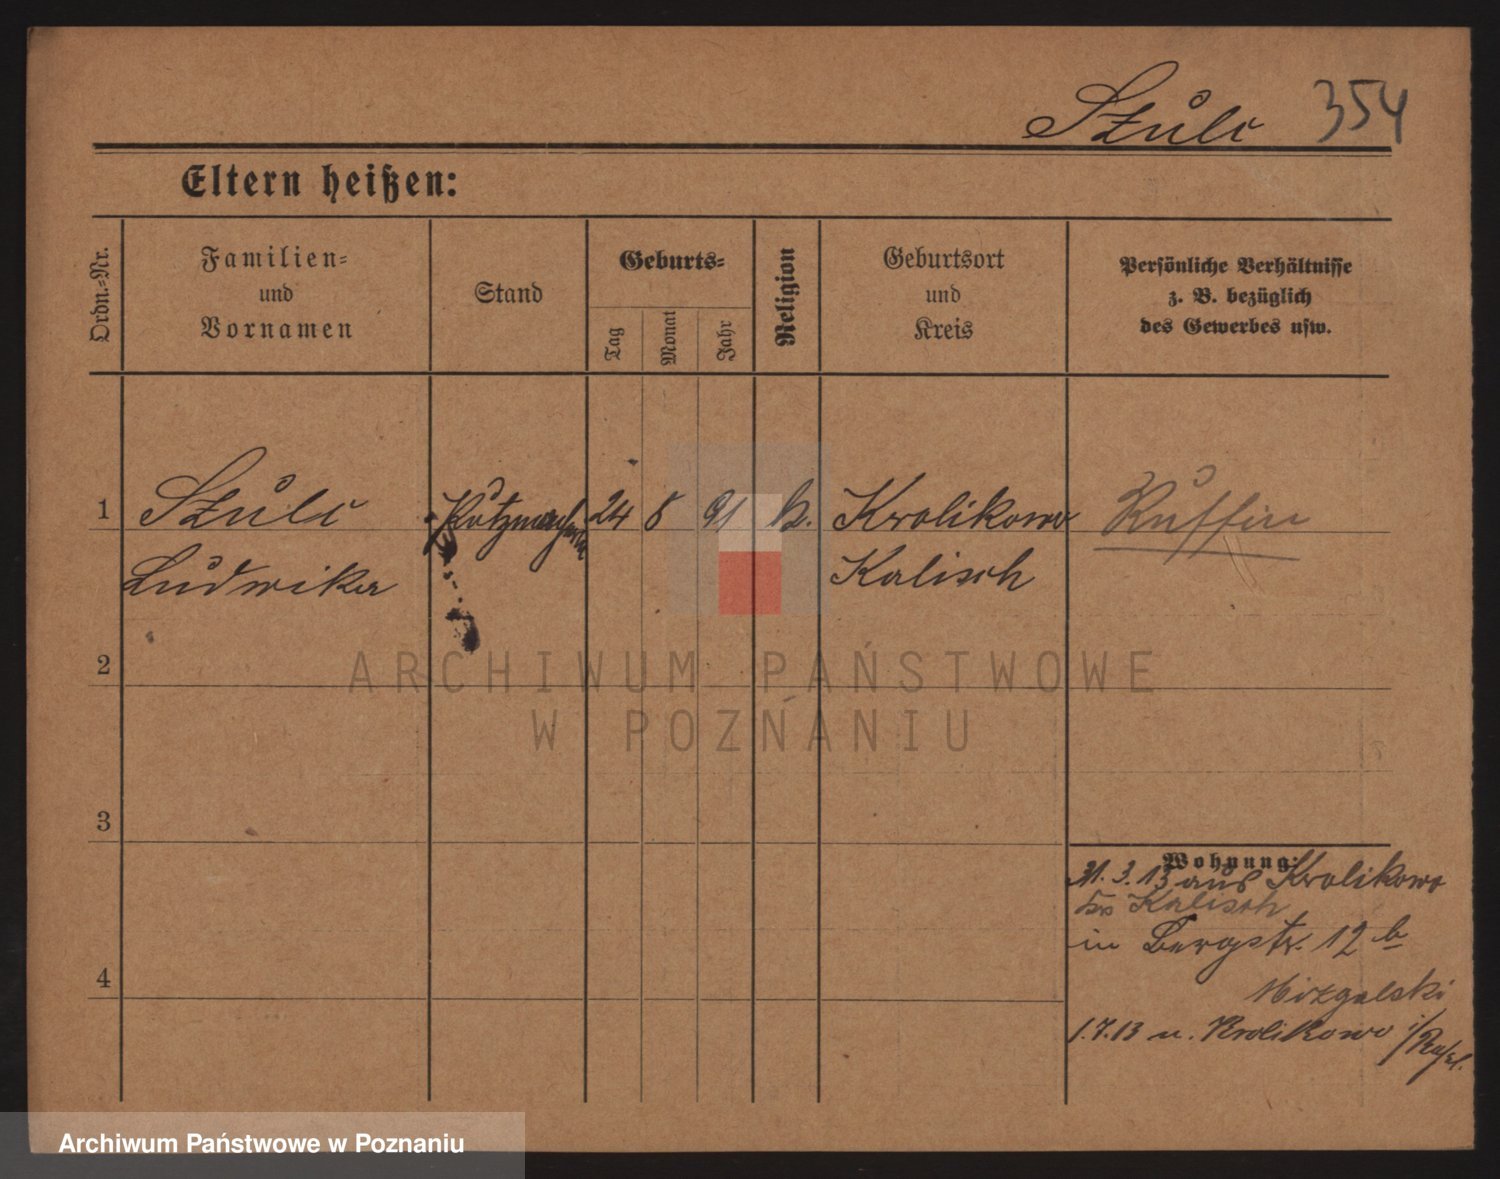 Szulc 354
Eltern heißen:
Ordn.-Nr.
Familien-
und
Vornamen
Stand
Geburts-
Tag
Monat
Jahr
Religion
Geburtsort
und
Kreis
Persönliche Verhältnisse
z. B. bezüglich
des Gewerbes usw.
1 Szulc Putzmacherin 24 8 91 k. Krolikowo Russin
Ludwika Kalisch
ARCHIWUM PAŃSTWOWE
W POZNANIU
2
3
4
Wohnung:
31.3.13 aus Krolikowo
Krs Kalisch
in Bergstr. 12 b
Mizgalski
1.7.13 n. Krolikowo
Archiwum Państwowe w Poznaniu